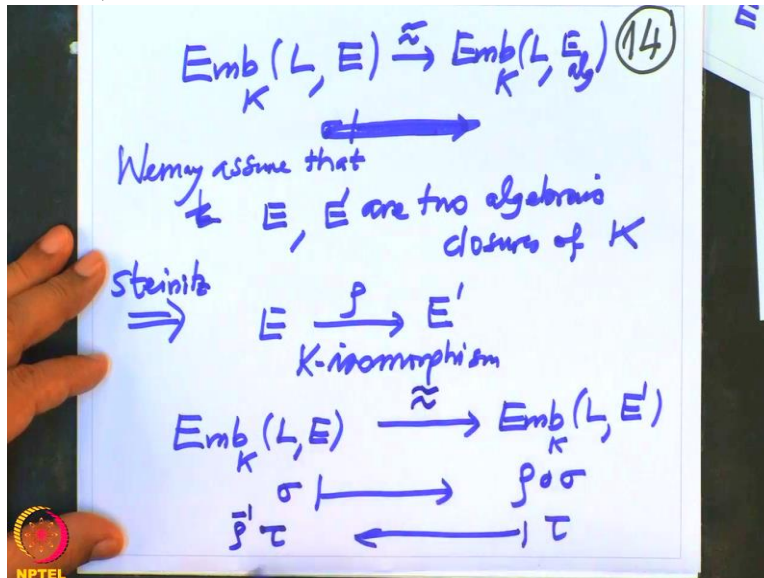 Emb_K (L, E) ≈→ Emb_K (L, E_alg) 14
We may assume that
E, E' are two algebraic
closures of K
Steinitz
⇒ E ρ→ E'
K-isomorphism
Emb_K (L, E) ≈→ Emb_K (L, E')
σ ↦ ρ∘σ
ρ⁻¹τ ↤ τ
NPTEL